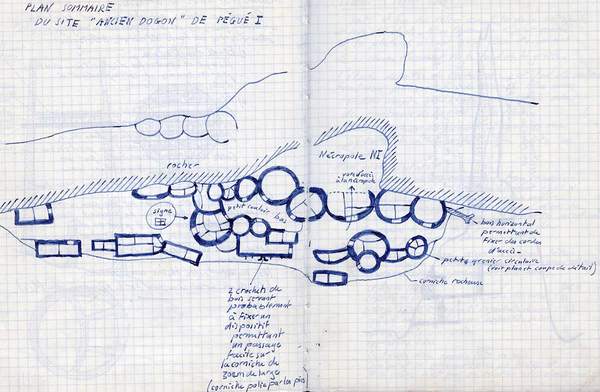 PLAN SOMMAIRE
DU SITE "ANCIEN DOGON" DE PÉGUÉ I
rocher
Nécropole NI
à la nécropole
signe
petit couloir bas
bois horizontal
permettant de
fixer des cordes
d'accès
petits grenier circulaire
(voir plan et coupe de détail)
corniche rocheuse
2 crochets de
bois servant
probablement
à fixer un
dispositif
permettant
un passage
facile sur
la corniche de
30cm de large
(corniche polie par les pieds